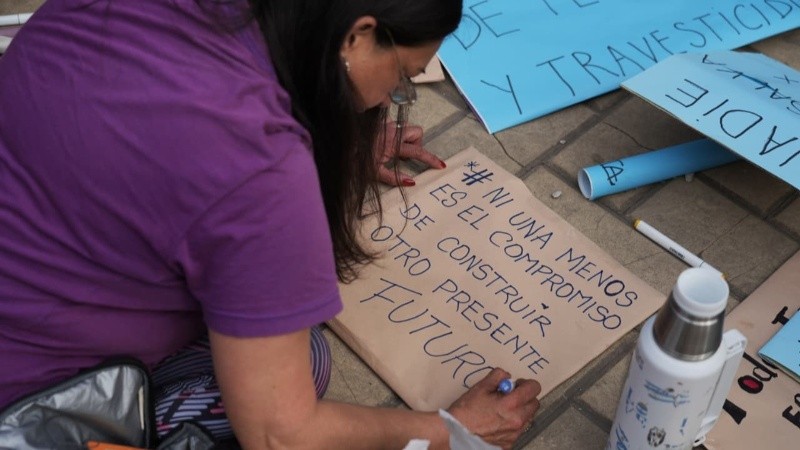 DE TE
Y TRAVESTICID
NADIE
*# NI UNA MENOS
ES EL COMPROMISO
DE CONSTRUIR
OTRO PRESENTE
FUTURO